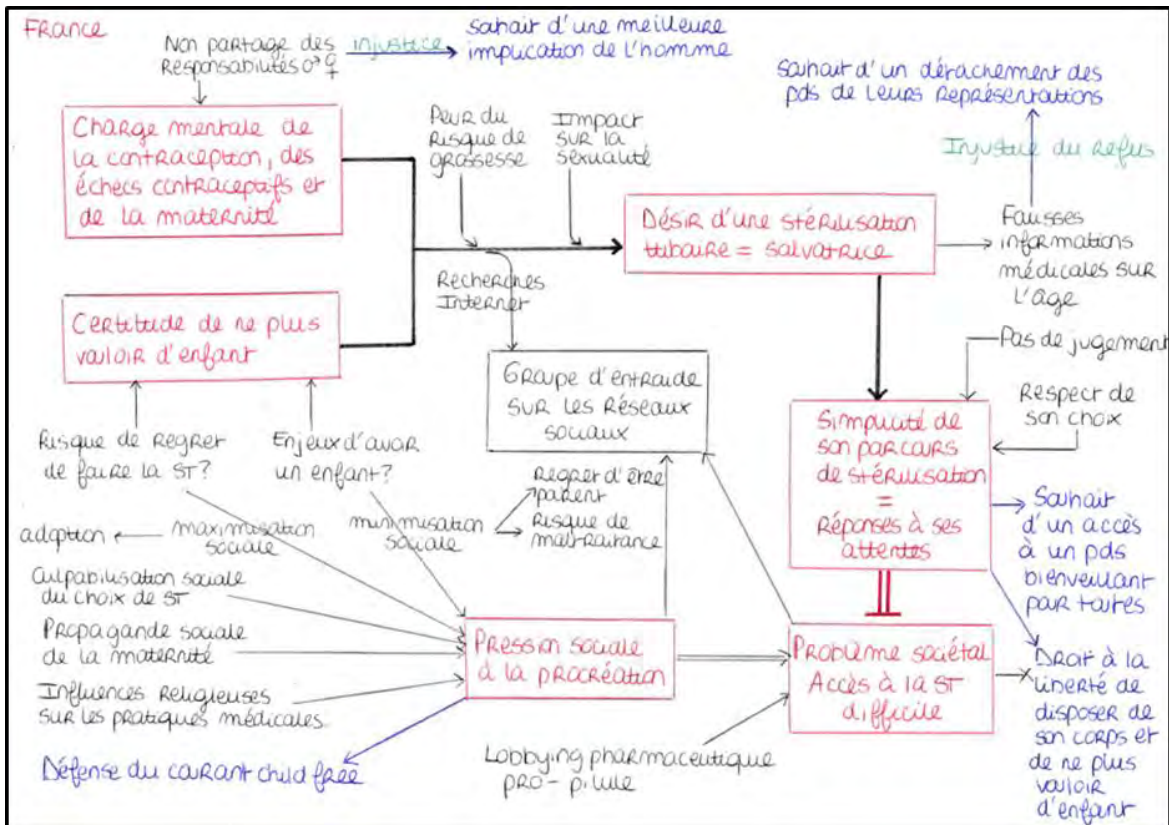 France
Non partage des
Responsabilités ♂ ♀
injustice
souhait d'une meilleure
implication de l'homme
souhait d'un détachement des
pds de leurs représentations
Injustice du refus
Charge mentale de
la contraception, des
échecs contraceptifs et
de la maternité
Peur du
risque de
grossesse
Impact
sur la
sexualité
Désir d'une stérilisation
tubaire = salvatrice
Fausses
informations
médicales sur
l'âge
Recherches
Internet
Certitude de ne plus
vouloir d'enfant
Pas de jugement
Groupe d'entraide
sur les réseaux
sociaux
Respect de
son choix
Simplicité de
son parcours
de stérilisation
=
Réponses à ses
attentes
Risque de regret
de faire la ST?
Enjeux d'avoir
un enfant?
Regret d'être
parent
Risque de
maltraitance
adoption
maximisation
sociale
minimisation
sociale
Souhait
d'un accès
à un pds
bienveillant
pour toutes
Culpabilisation sociale
du choix de ST
Propagande sociale
de la maternité
Influences religieuses
sur les pratiques médicales
Pression sociale
à la procréation
Problème sociétal
Accès à la ST
difficile
Droit à la
liberté de
disposer de
son corps et
de ne plus
vouloir
d'enfant
Défense du courant child free
Lobbying pharmaceutique
pro-pilule